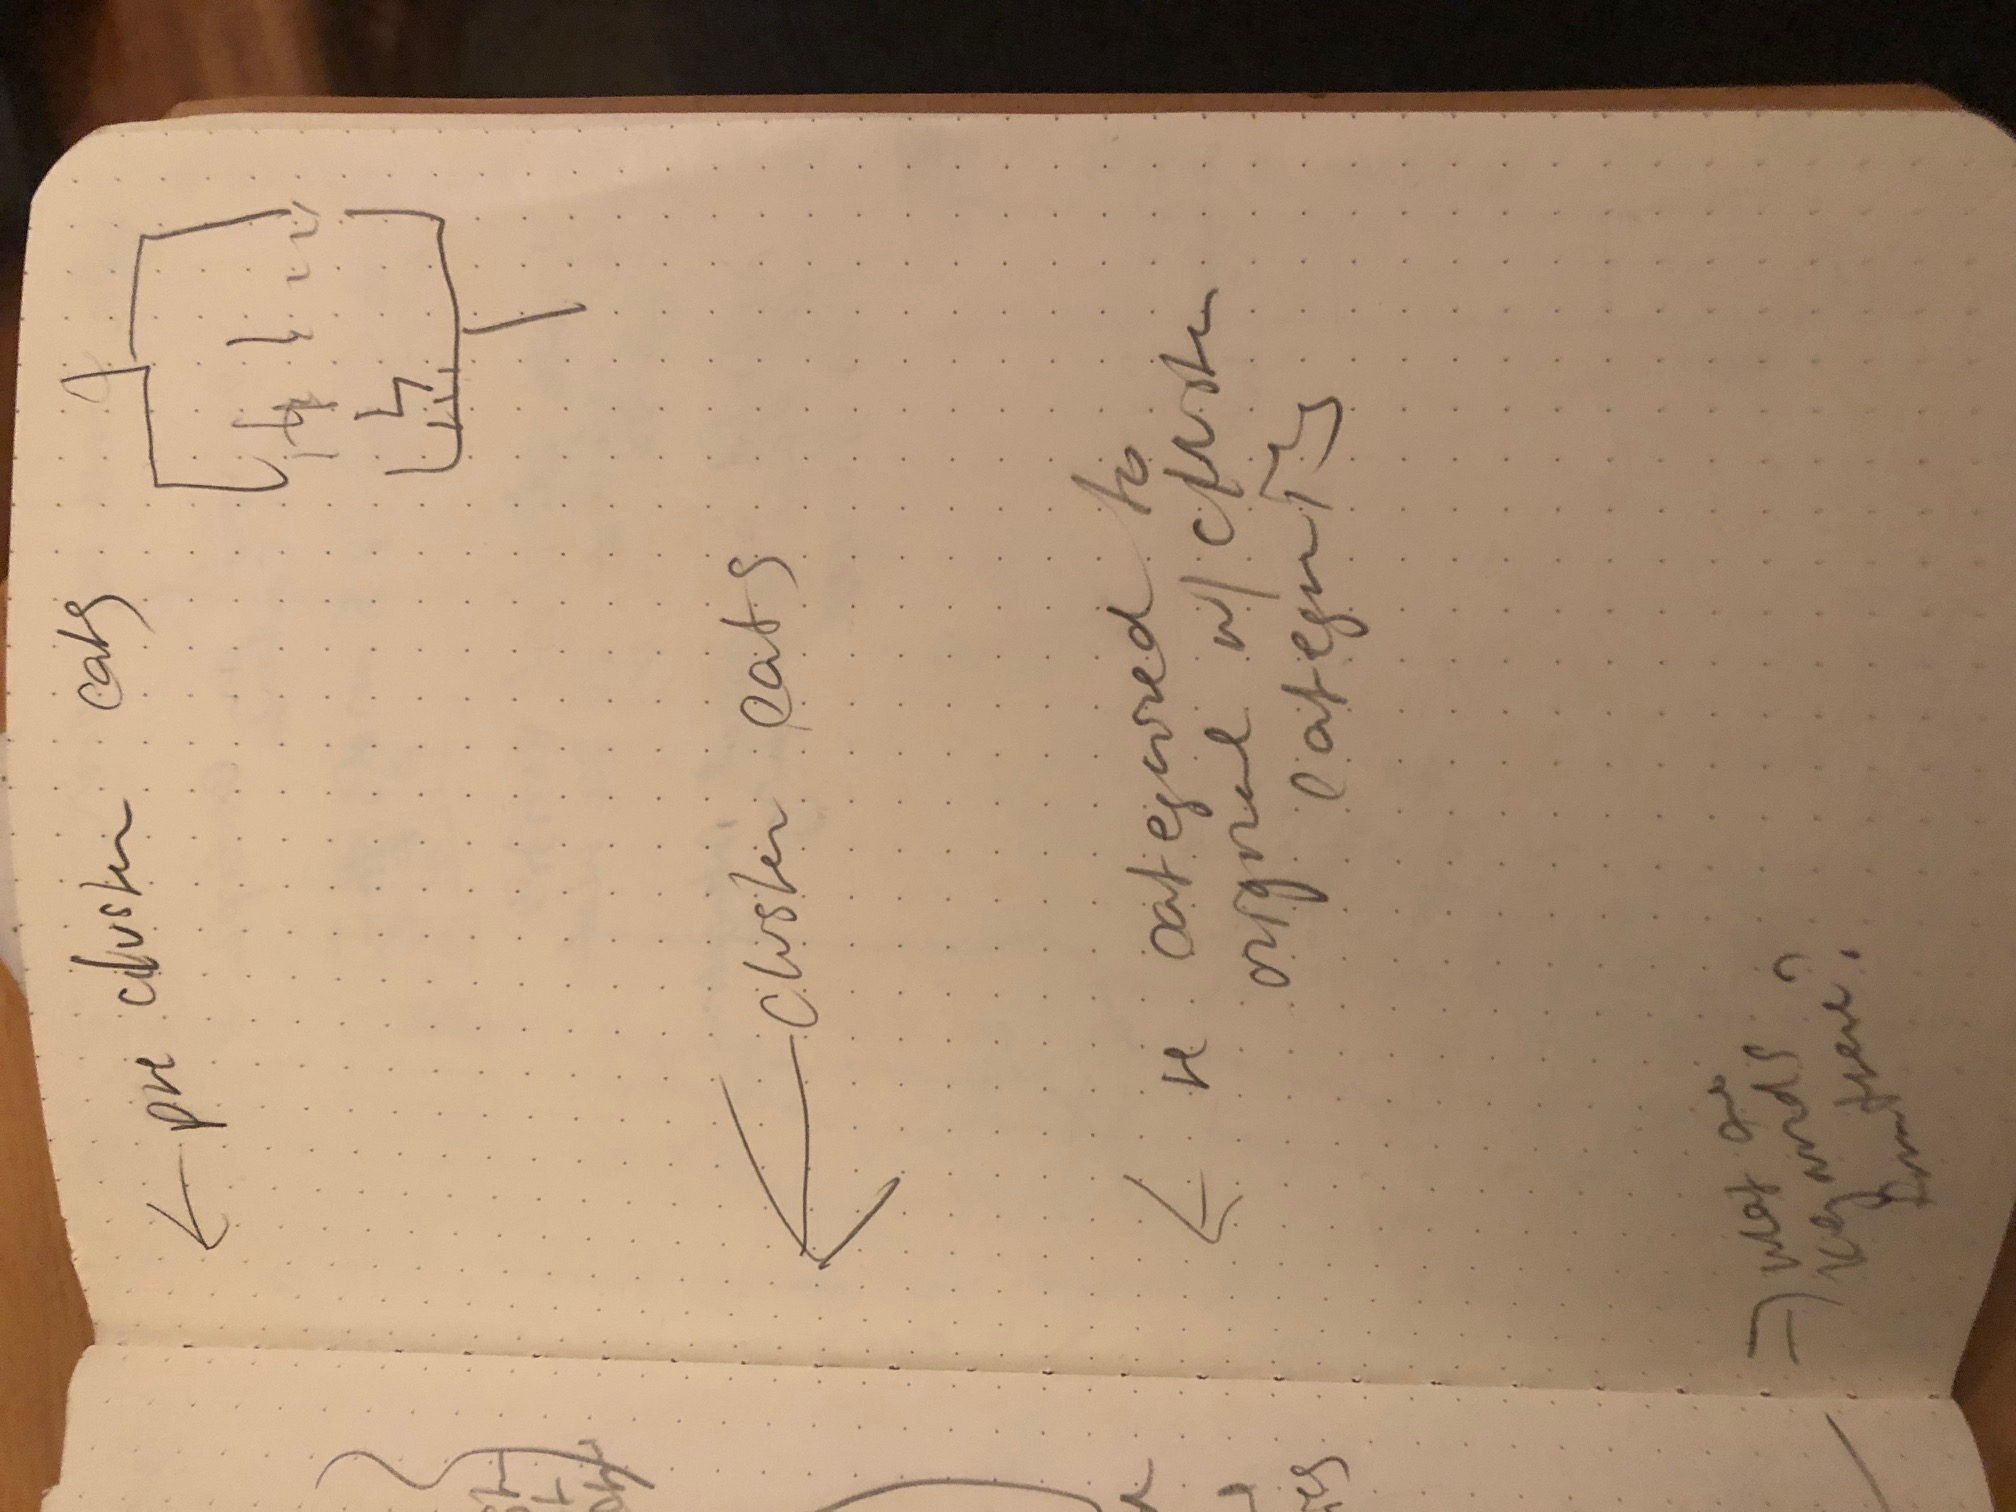 ← pre cluster cats
← cluster cats
← re categorized to
original w/ cluster
categories
⇒ what are
keywords
from these?